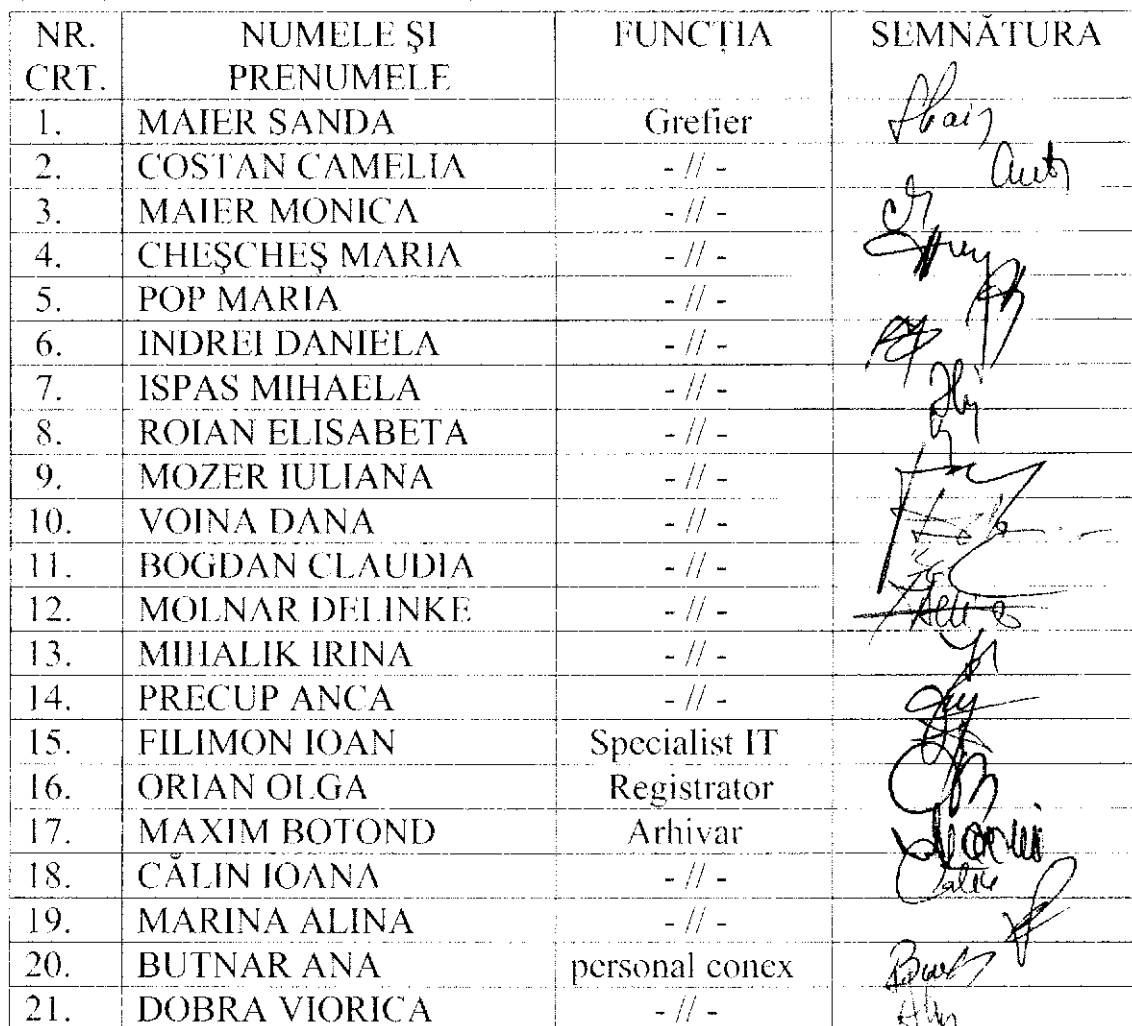 NR. CRT. NUMELE ŞI PRENUMELE FUNCŢIA SEMNĂTURA
1. MAIER SANDA Grefier
2. COSTAN CAMELIA - // -
3. MAIER MONICA - // -
4. CHEŞCHEŞ MARIA - // -
5. POP MARIA - // -
6. INDREI DANIELA - // -
7. ISPAS MIHAELA - // -
8. ROIAN ELISABETA - // -
9. MOZER IULIANA - // -
10. VOINA DANA - // -
11. BOGDAN CLAUDIA - // -
12. MOLNAR DELINKE - // -
13. MIHALIK IRINA - // -
14. PRECUP ANCA - // -
15. FILIMON IOAN Specialist IT
16. ORIAN OLGA Registrator
17. MAXIM BOTOND Arhivar
18. CĂLIN IOANA - // -
19. MARINA ALINA - // -
20. BUTNAR ANA personal conex
21. DOBRA VIORICA - // -